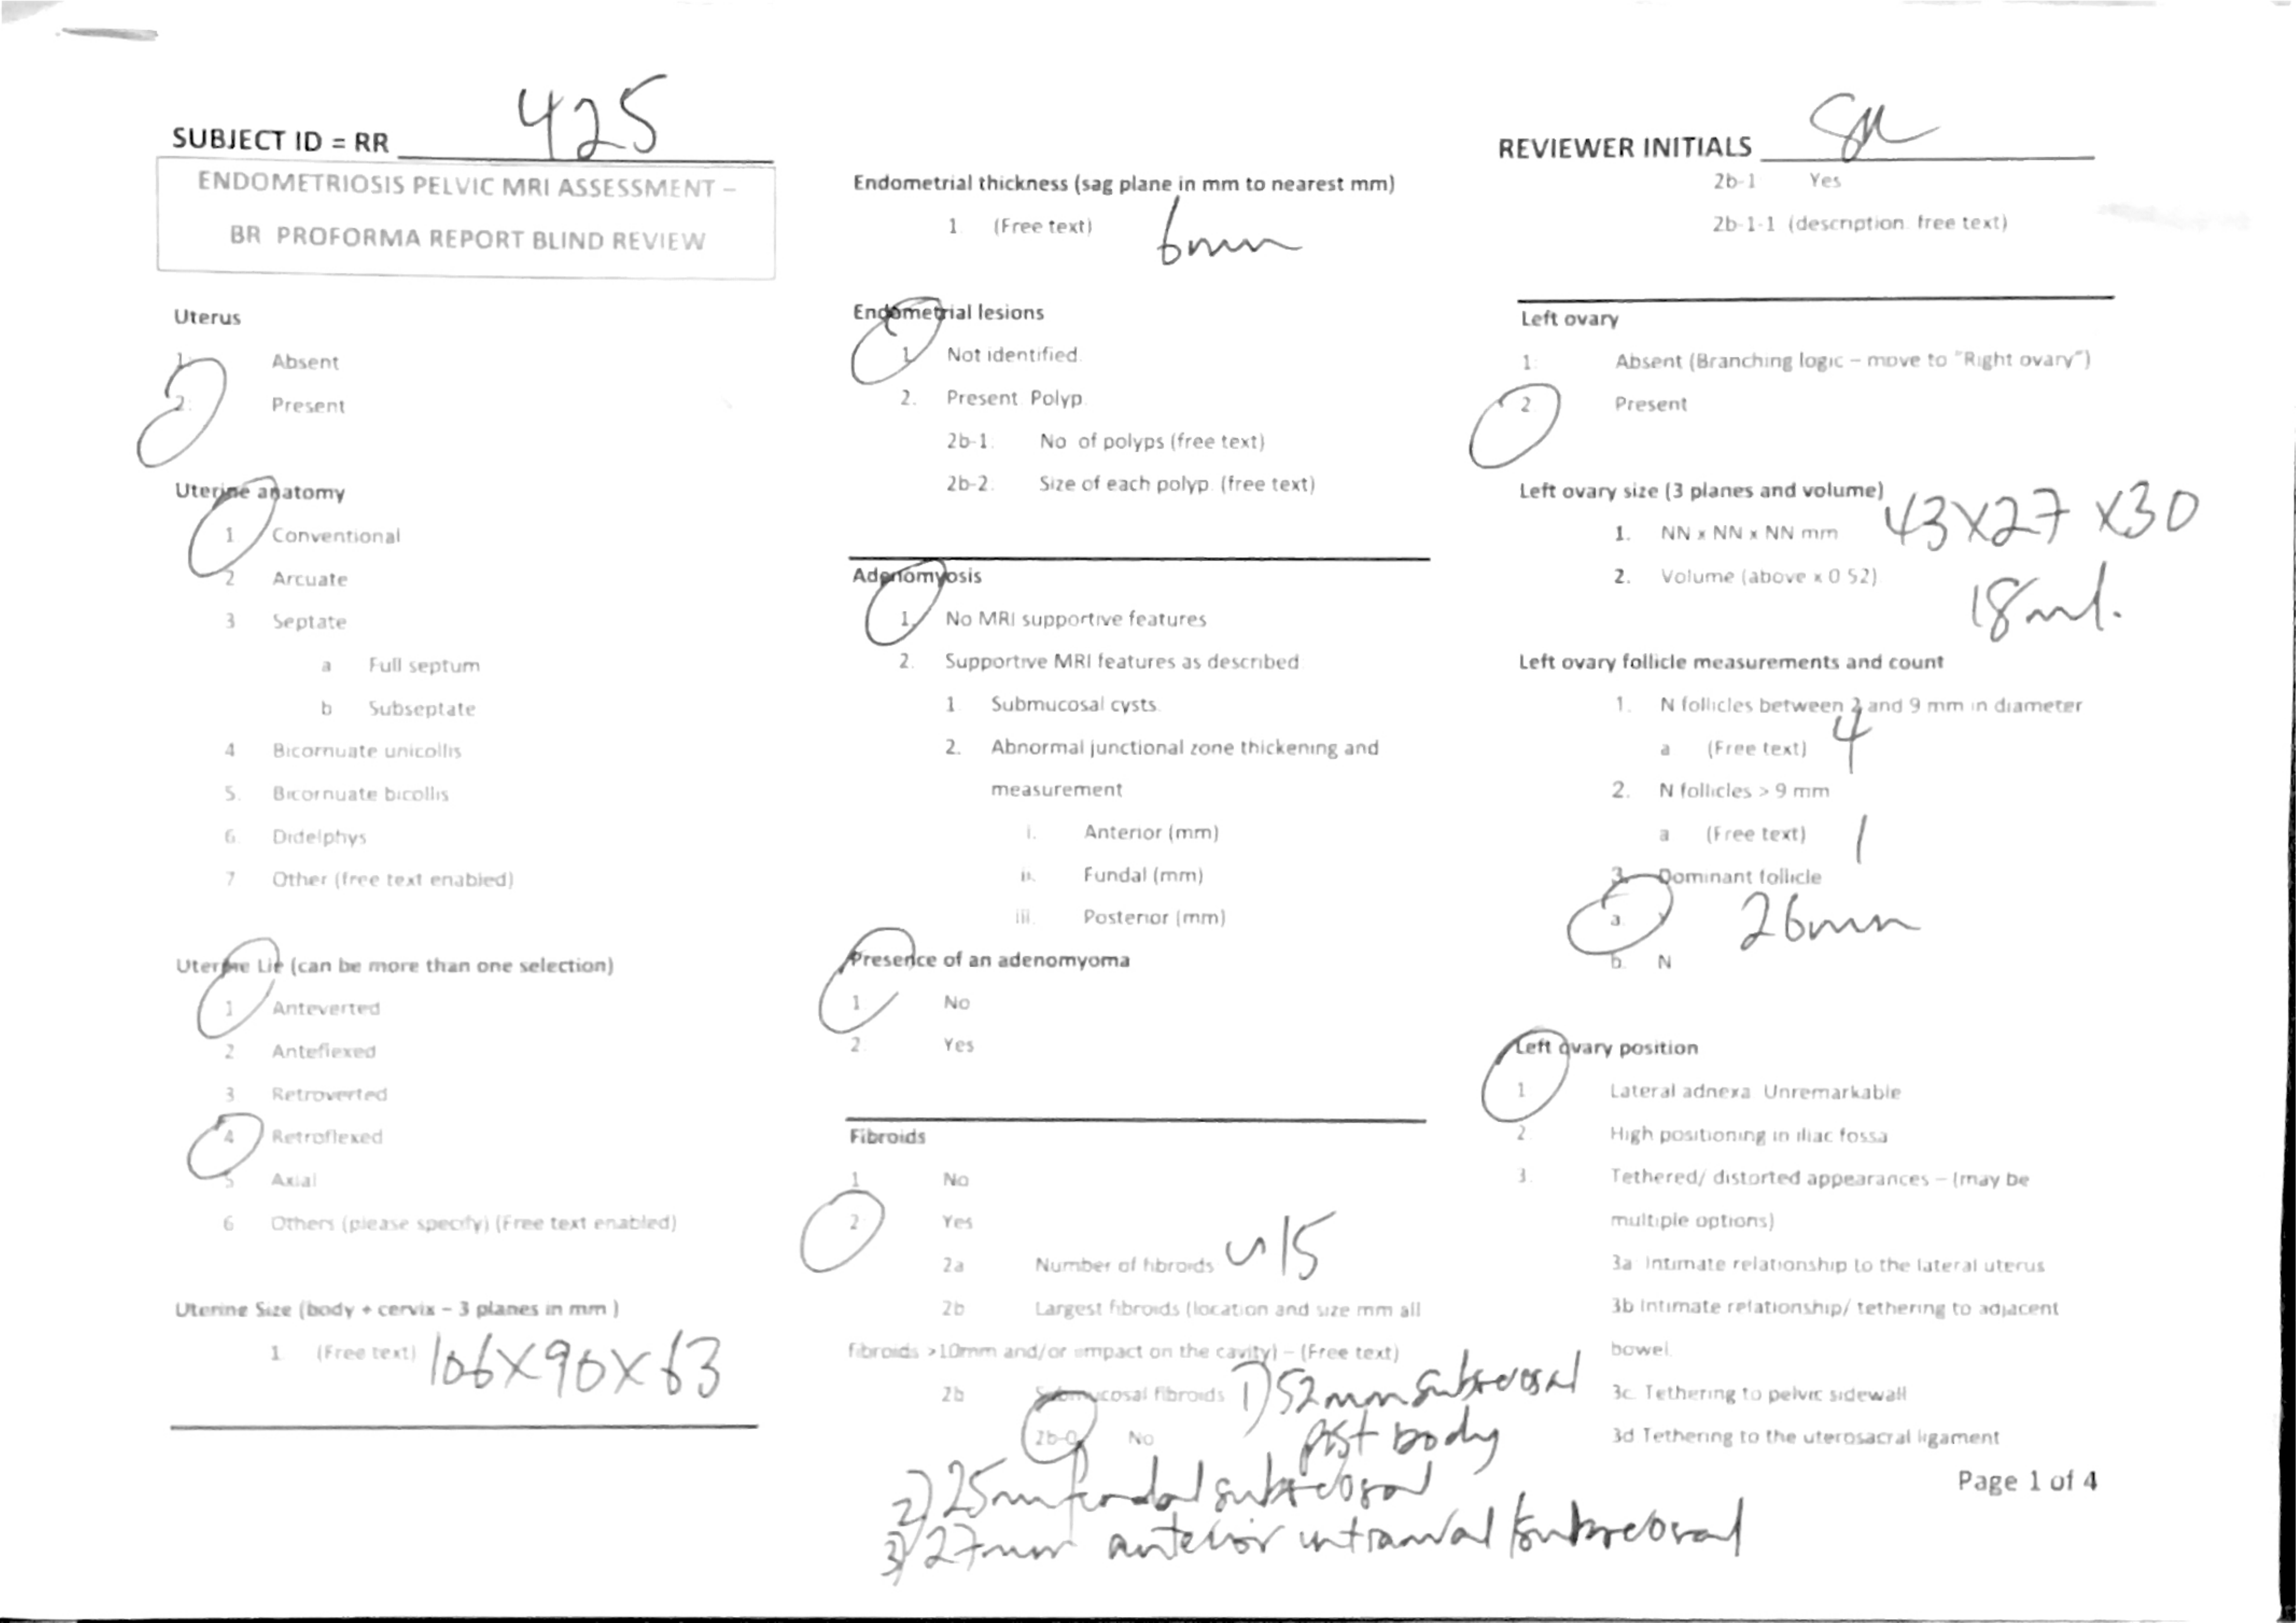 SUBJECT ID = RR 425
ENDOMETRIOSIS PELVIC MRI ASSESSMENT –
BR PROFORMA REPORT BLIND REVIEW
Uterus
1. Absent
2. Present
Uterine anatomy
1 Conventional
2 Arcuate
3 Septate
a Full septum
b Subseptate
4 Bicornuate unicollis
5. Bicornuate bicollis
6. Didelphys
7 Other (free text enabled)
Uterine Lie (can be more than one selection)
1 Anteverted
2 Anteflexed
3 Retroverted
4 Retroflexed
5 Axial
6 Others (please specify) (Free text enabled)
Uterine Size (body + cervix – 3 planes in mm )
1 (Free text) 106X90X63
Endometrial thickness (sag plane in mm to nearest mm)
1 (Free text) 6mm
Endometrial lesions
1. Not identified.
2. Present Polyp.
2b-1. No of polyps (free text)
2b-2. Size of each polyp. (free text)
Adenomyosis
1. No MRI supportive features
2. Supportive MRI features as described
1 Submucosal cysts.
2. Abnormal junctional zone thickening and
measurement
i. Anterior (mm)
ii. Fundal (mm)
iii. Posterior (mm)
Presence of an adenomyoma
1 No
2. Yes
Fibroids
1 No
2 Yes
2a Number of fibroids ~15
2b Largest fibroids (location and size mm all
fibroids >10mm and/or impact on the cavity) – (Free text)
2b Submucosal fibroids 1) 52mm subserosal
2b-0 No post body
2) 25mm fundal subserosal
3) 27mm anterior intramural/subserosal
REVIEWER INITIALS
2b-1 Yes
2b-1-1 (description. free text)
Left ovary
1. Absent (Branching logic – move to "Right ovary")
2. Present
Left ovary size (3 planes and volume)
1. NN x NN x NN mm 43X27X30
2. Volume (above x 0.52) 18ml.
Left ovary follicle measurements and count
1. N follicles between 2 and 9 mm in diameter
a (Free text) 4
2. N follicles > 9 mm
a (Free text) 1
3. Dominant follicle
a. Y 26mm
b. N
Left ovary position
1 Lateral adnexa Unremarkable
2. High positioning in iliac fossa
3. Tethered/ distorted appearances – (may be
multiple options)
3a Intimate relationship to the lateral uterus
3b Intimate relationship/ tethering to adjacent
bowel.
3c. Tethering to pelvic sidewall
3d Tethering to the uterosacral ligament
Page 1 of 4